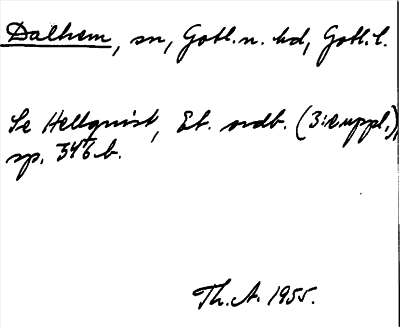 Dalhem, sn, Gotl. n. hd, Gotl. l.
Se Hellquist, Et. ordb. (3:e uppl.),
sp. 346 b.
Th. A. 1955.